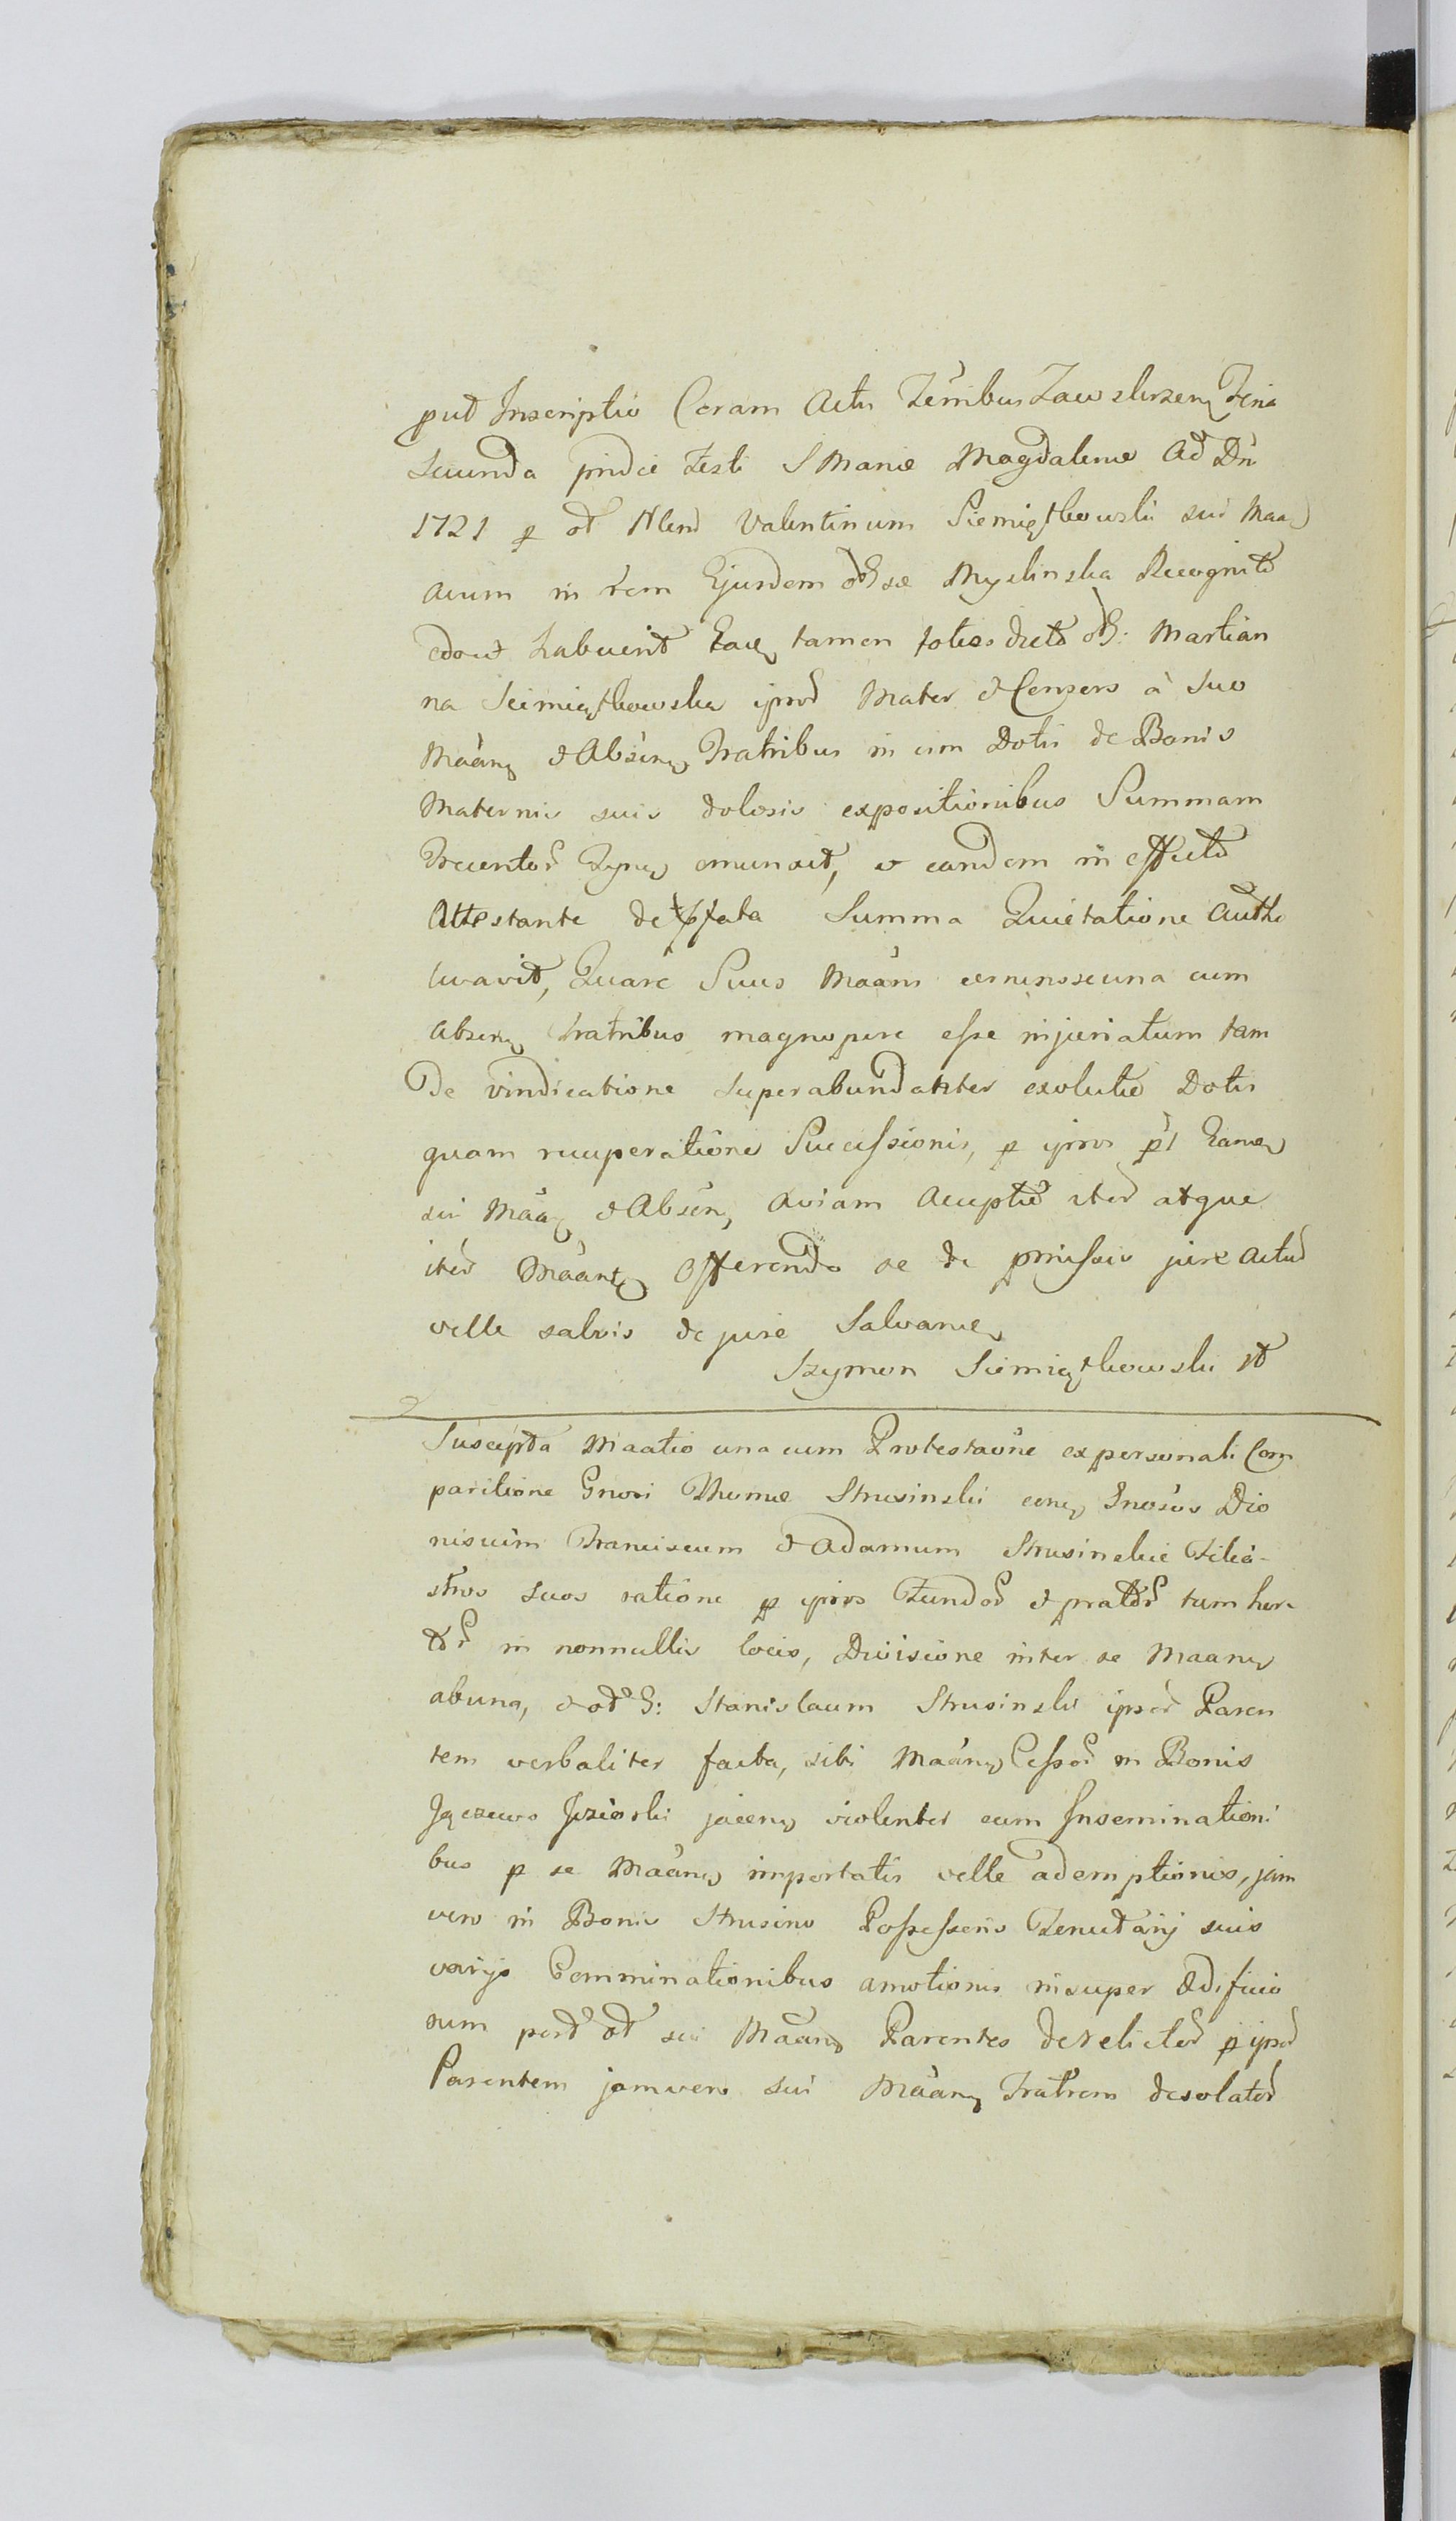 put Inscriptio Coram Actis Zemibus Zawskrzen Feria
Secunda pridie Festi S Mariæ Magdalenæ Ad Dni
1721 p Valentinum Siemiątkowski sui Maa
avum in rem Ejusdem Myslinska Recognita
edocet habuerit tamen toties dicta Martian
na Seimiątkowska ipsor Mater & Censors à Suo
Maãn & Absen Fratribus in vim Dotis de Bonis
Maternis suis dolosis expositionibus Summam
Trecentor emunxit, et eandem in effectu
Attestante de Summa Quietatione Autho
levavit, Quare Suus Maãns cernens se una cum
absen Fratribus magnopere esse injuriatum tam
De vindicatione superabundanter exolutæ Dotis
quam recuperatione Successionis, p ipsos
sui Maã & Absen, aviam acceptæ iter atque
iter Maãns Offerendo se de præmissis jure Actur
velle salvis de jure Salvan
Szymon Siemiątkowski
Suscepta Maatio una cum Protestaõne ex personali Com
paritione Gnosi Thomæ Strusinski Gnosos Dio
nisium Franciscum & Adamum Strusinskie Filia-
stros suos ratione p ipsos Fundor & prator tum hor
tor in nonnullis locis, Divisione inter se Maan
abung, & Stanislaum Strusinski ipsor Paren
tem verbaliter facta, sibi Maãn Cessor in Bonis
Jączewo Jeziorki jacen violenter cum Inseminationi
bus p se Maãn importatis velle ademptionis, jam
vero in Bonis Strusino Possessionis Tenutarij suis
varijs Comminationibus amotionis insuper Ædificio
rum sui Maãn Parentes derelictor p ipsor
Parentem jam vero sui Maãn Fratrem desolator